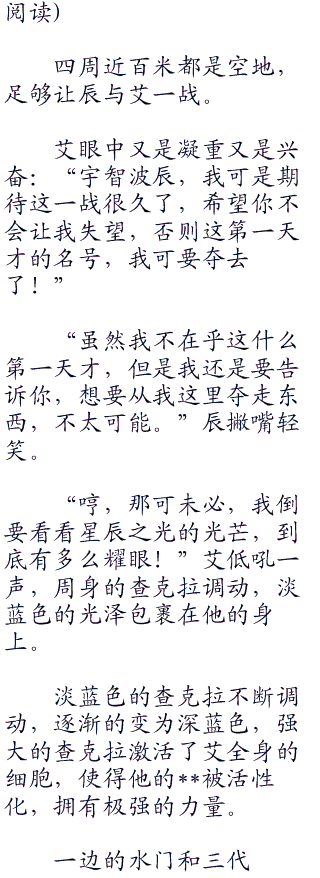 阅读)
四周近百米都是空地，
足够让辰与艾一战。
艾眼中又是凝重又是兴
奋：“宇智波辰，我可是期
待这一战很久了，希望你不
会让我失望，否则这第一天
才的名号，我可要夺去
了！”
“虽然我不在乎这什么
第一天才，但是我还是要告
诉你，想要从我这里夺走东
西，不太可能。”辰撇嘴轻
笑。
“哼，那可未必，我倒
要看看星辰之光的光芒，到
底有多么耀眼！”艾低吼一
声，周身的查克拉调动，淡
蓝色的光泽包裹在他的身
上。
淡蓝色的查克拉不断调
动，逐渐的变为深蓝色，强
大的查克拉激活了艾全身的
细胞，使得他的**被活性
化，拥有极强的力量。
一边的水门和三代